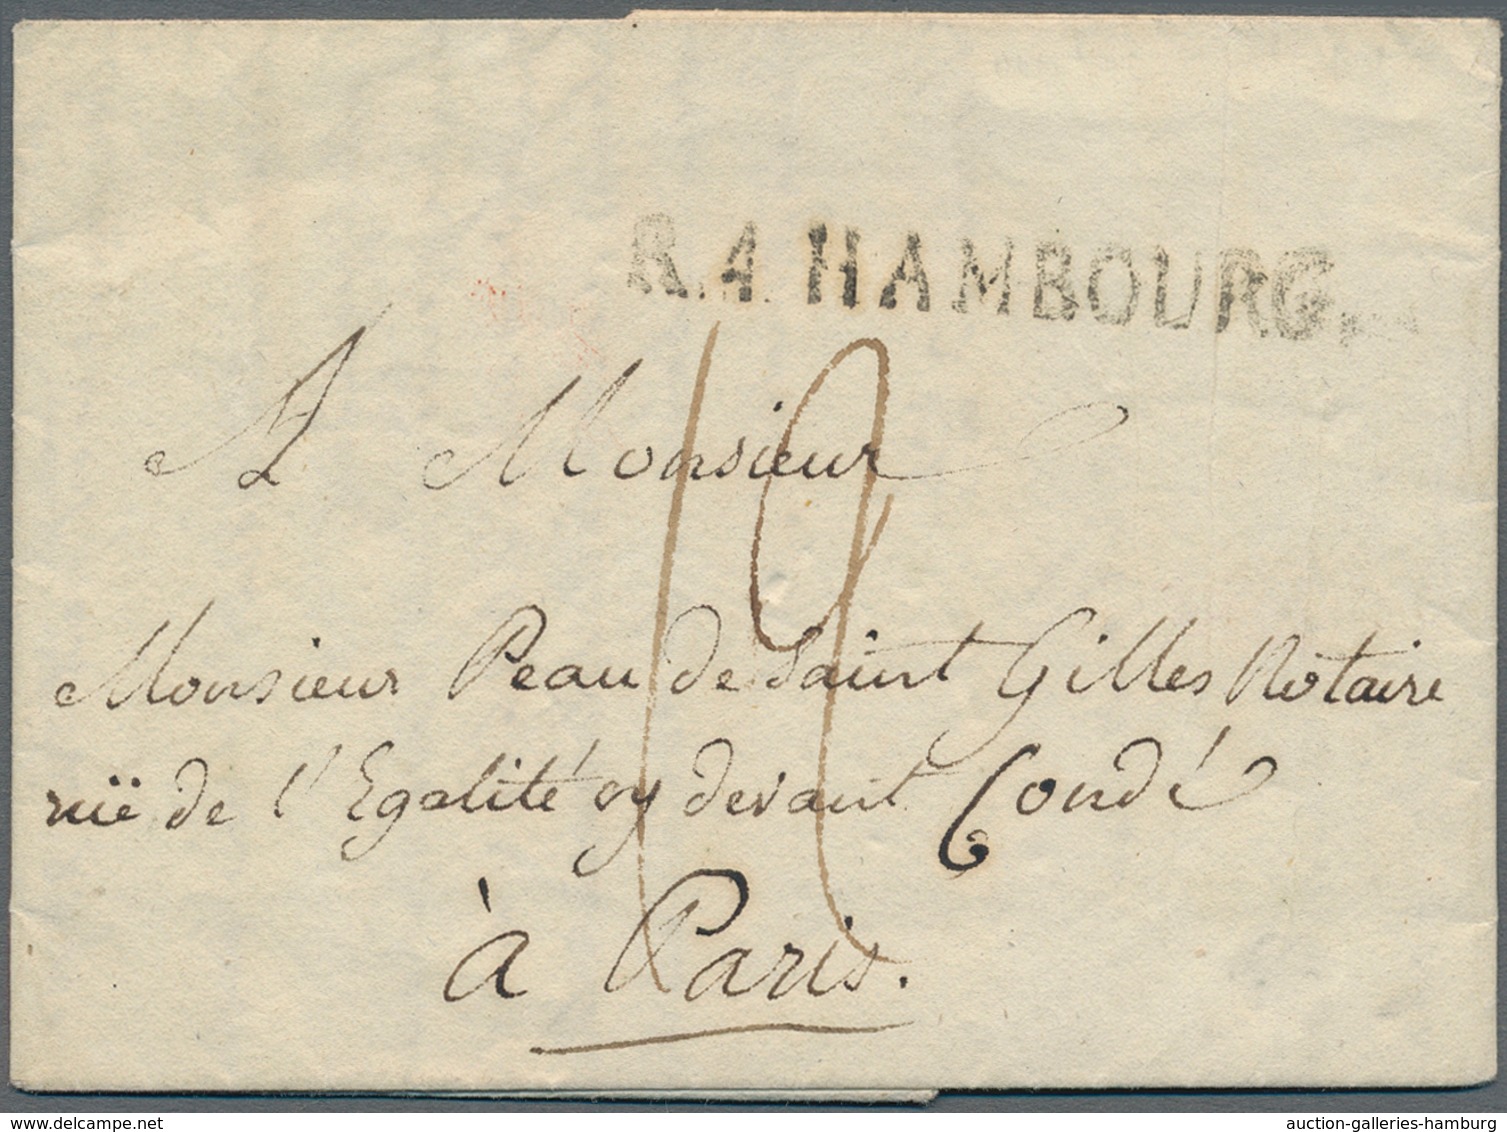 R.4. HAMBOURG.
A Monsieur
19
Monsieur Peau de Saint Gilles Notaire
ruë de l'Egalité cy devant Condé
à Paris.
www.delcampe.net
auction-galleries-hamburg